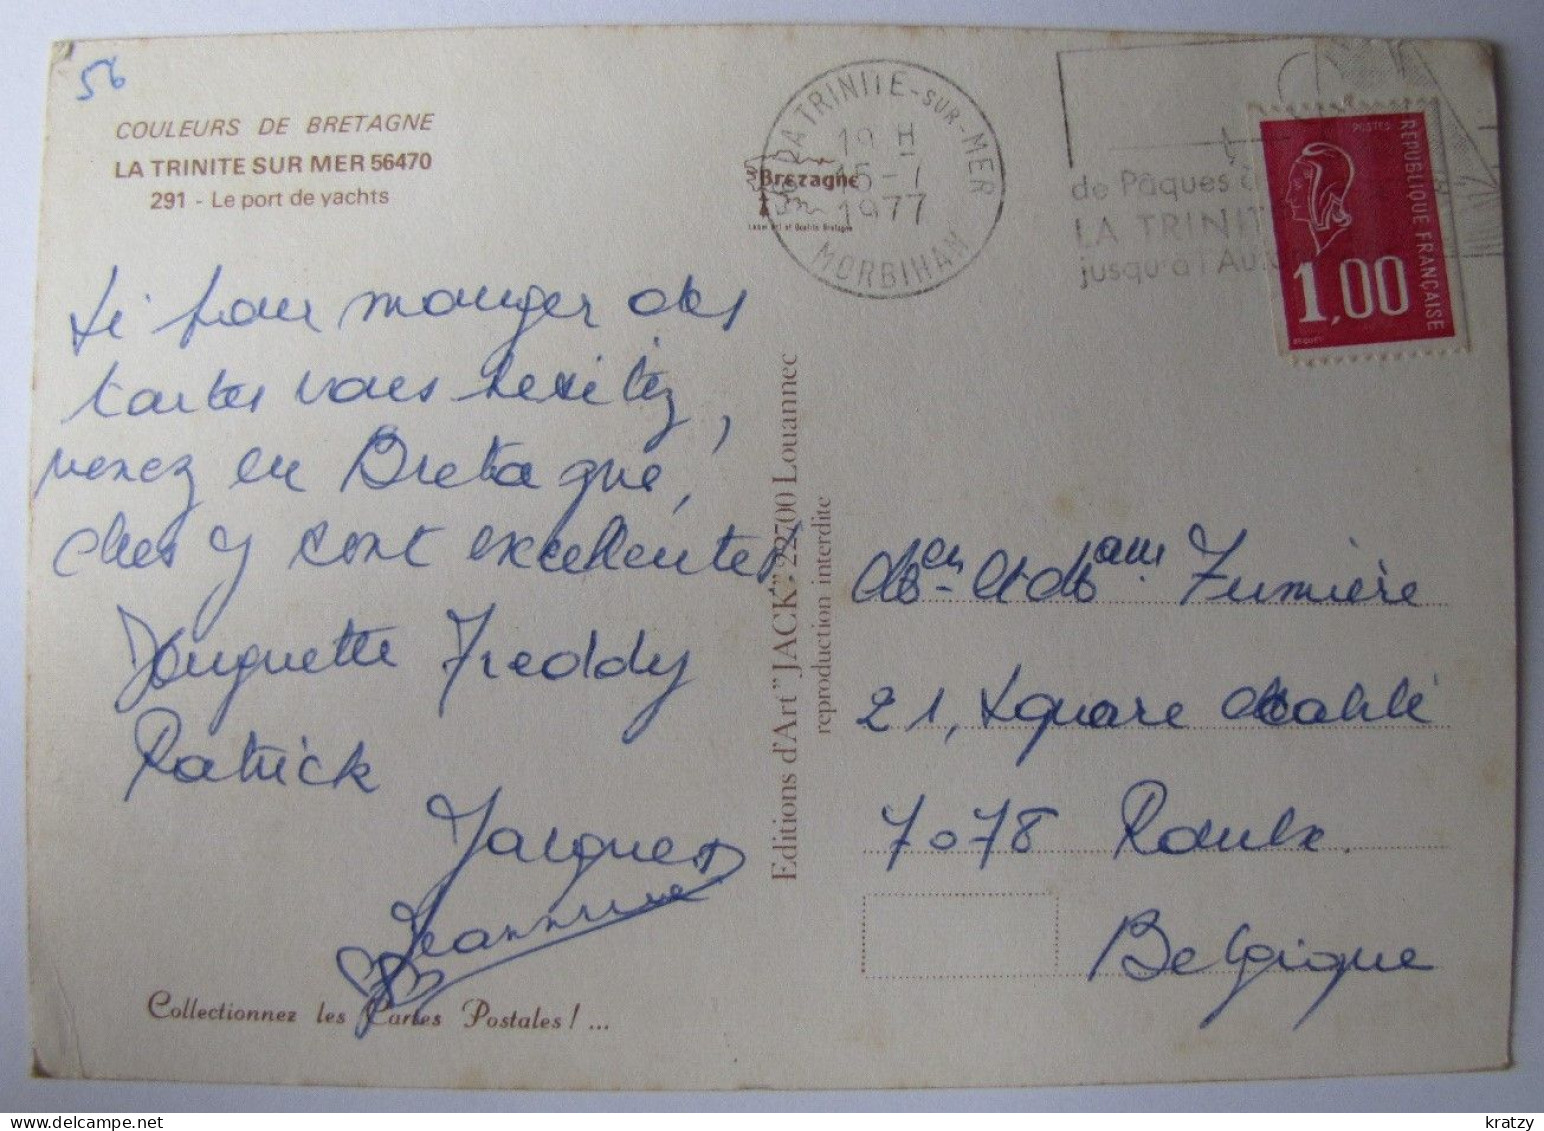 56
COULEURS DE BRETAGNE
LA TRINITE SUR MER 56470
291 - Le port de yachts
LA TRINITE-SUR-MER
19 H
15-7
1977
MORBIHAN
Brezagne
Label Art et Qualité Bretagne
de Pâques à
LA TRINIT
jusqu'à l'Au
POSTES
REPUBLIQUE FRANÇAISE
1,00
BEQUET
Si pour manger des
tartes vous hésitez,
venez en Bretagne,
elles y sont excellentes
Huguette Freddy
Patrick
Jacques
Jeannine
Collectionnez les Cartes Postales ! ...
Editions d'Art "JACK" 22700 Louannec
reproduction interdite
et Fumière
21, Square
7078 Roeulx.
Belgique